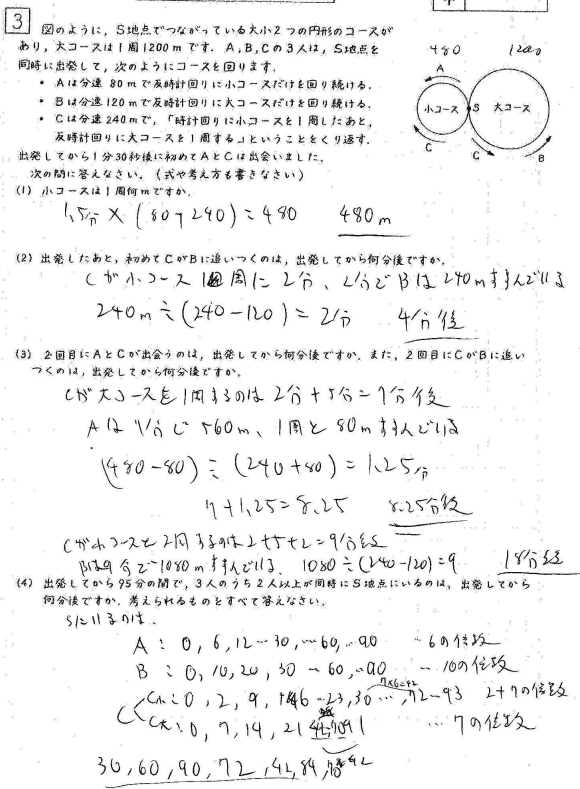 3
図のように，S地点でつながっている大小2つの円形のコースが
あり，大コースは1周1200mです．A，B，Cの3人は，S地点を
同時に出発して，次のようにコースを回ります．
・ Aは分速 80mで反時計回りに小コースだけを回り続ける．
・ Bは分速120mで反時計回りに大コースだけを回り続ける．
・ Cは分速240mで，「時計回りに小コースを1周したあと，
反時計回りに大コースを1周する」ということをくり返す．
480 1200
A
小コース S 大コース
C C B
出発してから1分30秒後に初めてAとCは出会いました．
次の問に答えなさい．（式や考え方も書きなさい）
(1) 小コースは1周何mですか．
1.5分 × (80+240) = 480 480m
(2) 出発したあと，初めてCがBに追いつくのは，出発してから何分後ですか．
Cが小コース1周に2分、2分でBは240mすすんでいる
240m ÷ (240-120) = 2分 4分後
(3) 2回目にAとCが出会うのは，出発してから何分後ですか．また，2回目にCがBに追い
つくのは，出発してから何分後ですか．
Cが大コースを1周するのは 2分+5分=7分後
Aは7分で560m、1周と80mすすんでいる
(480-80) ÷ (240+80) = 1.25分
7+1.25=8.25 8.25分後
Cが小コースを2周するのは2+5+2=9分後
Bは9分で1080mすすんでいる. 1080÷(240-120)=9 18分後
(4) 出発してから95分の間で，3人のうち2人以上が同時にS地点にいるのは，出発してから
何分後ですか．考えられるものをすべて答えなさい．
Sにいるのは.
A : 0, 6, 12 … 30, … 60, … 90 … 6の倍数
B : 0, 10, 20, 30 … 60, … 90 … 10の倍数
7×6=42
C : 0, 2, 9, 16 … 23, 30 …, 72 … 93 2+7の倍数
: 0, 7, 14, 21 91 … 7の倍数
30, 60, 90, 72, 42, 84,